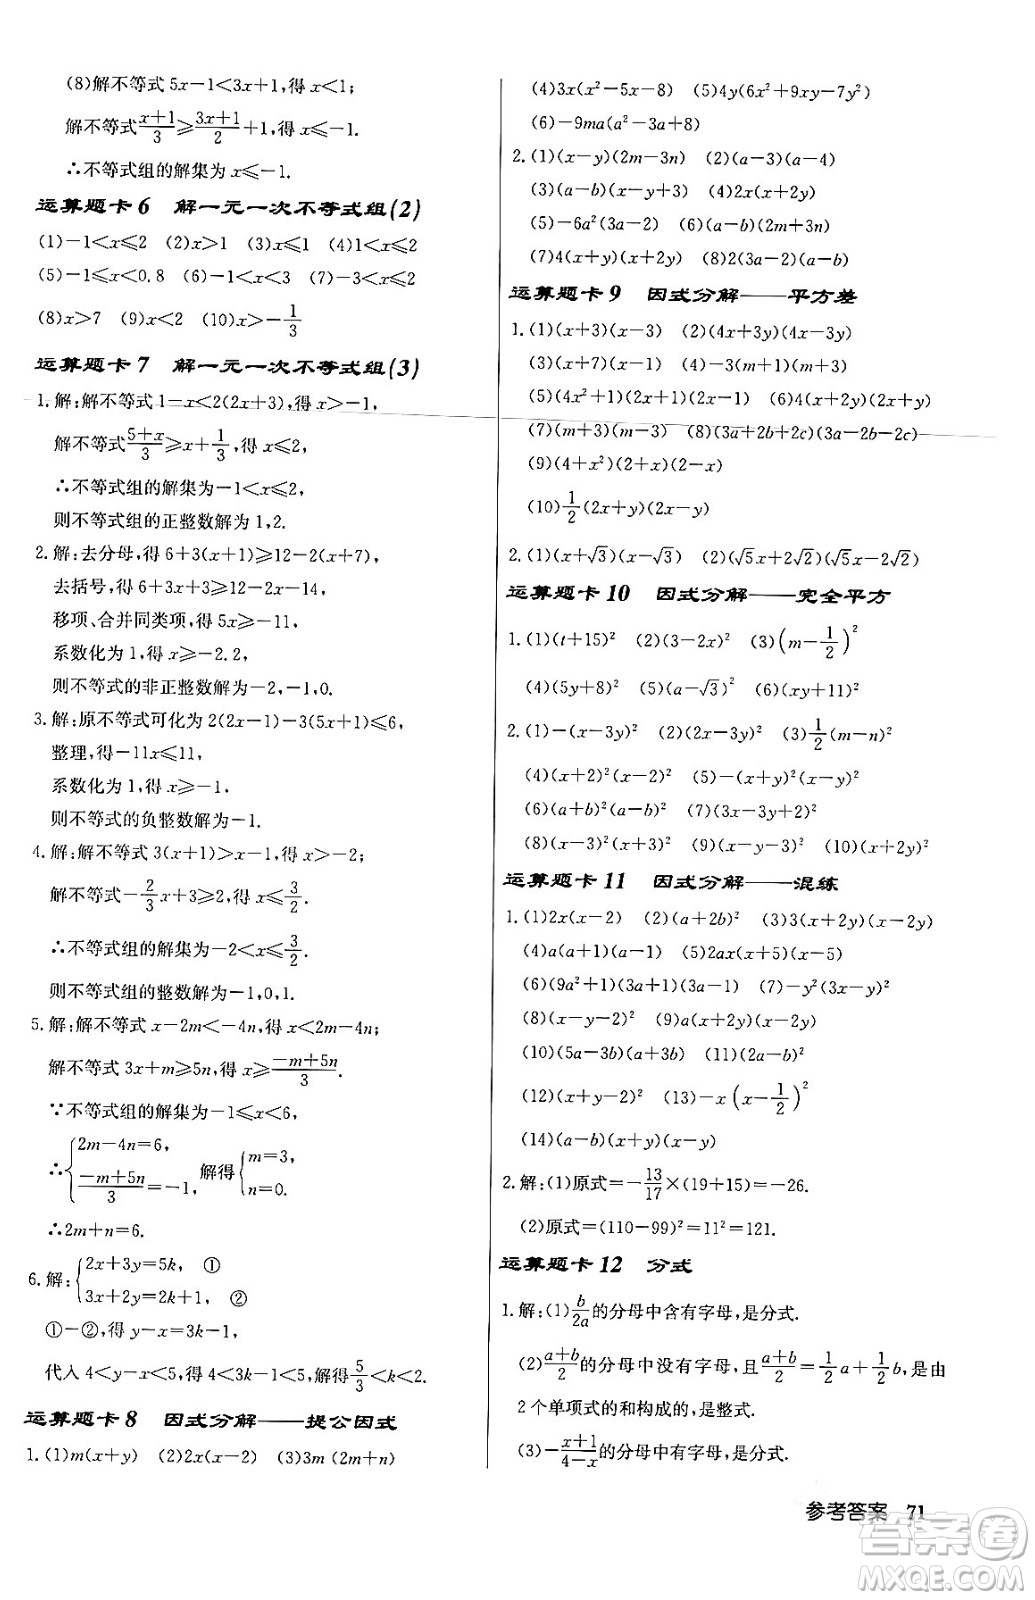 (8)解不等式 5x－1＜3x＋1,得 x＜1;
解不等式 (x＋1)/3≥(3x＋1)/2＋1,得 x≤－1.
∴不等式组的解集为 x≤－1.
运算题卡 6 解一元一次不等式组(2)
(1)－1＜x≤2 (2)x＞1 (3)x≤1 (4)1＜x≤2
(5)－1≤x＜0.8 (6)－1＜x≤2 (7)－3＜x≤1
(8)x＞7 (9)x＜2 (10)x＞－1/3
运算题卡 7 解一元一次不等式组(3)
1.解:解不等式 1－x＜2(2x＋3),得 x＞－1,
解不等式 (5＋x)/3≥x＋1/3,得 x≤2,
∴不等式组的解集为－1＜x≤2,
则不等式组的正整数解为 1,2.
2.解:去分母,得 6＋3(x＋1)≥12－2(x＋7),
去括号,得 6＋3x＋3≥12－2x－14,
移项、合并同类项,得 5x≥－11,
系数化为 1,得 x≥－2.2,
则不等式的非正整数解为－2,－1,0.
3.解:原不等式可化为 2(2x－1)－3(5x＋1)≤6,
整理,得－11x≤11,
系数化为 1,得 x≥－1,
则不等式的负整数解为－1.
4.解:解不等式 3(x＋1)＞x－1,得 x＞－2;
解不等式－2/3x＋3≥2,得 x≤3/2.
∴不等式组的解集为－2＜x≤3/2.
则不等式组的整数解为－1,0,1.
5.解:解不等式 x－2m＜－4n,得 x＜2m－4n;
解不等式 3x＋m≥5n,得 x≥(－m＋5n)/3.
∵不等式组的解集为－1≤x＜6,
∴{2m－4n＝6, (－m＋5n)/3＝－1, 解得{m＝3, n＝0.
∴2m＋n＝6.
6.解:{2x＋3y＝5k, ①
3x＋2y＝4k＋1, ②
①－②,得 y－x＝k－1,
代入 4＜y－x＜5,得 4＜3k－1＜5,解得 5/3＜k＜2.
运算题卡 8 因式分解——提公因式
1.(1)m(x＋y) (2)2x(x－2) (3)3m (2x－y)
(4)3x(x²－5x－8) (5)4y(2x²＋9xy－7y²)
(6)－9ma(a²－3a＋8)
2.(1)(x－y)(2m－3n) (2)(a－3)(a－4)
(3)(a－b)(x－y) (4)2x(x＋2y)
(5)－6a²(3a－2) (6)－2(2m＋3n)
(7)4(x＋y)(x－y) (8)2(3a－2)(2a－b)
运算题卡 9 因式分解——平方差
1.(1)(x＋3)(x－3) (2)(4x＋3y)(4x－3y)
(3)(x＋7)(x－1) (4)(5x＋y)(x＋5y)
(5)(4x²＋1)(2x＋1)(2x－1) (6)4(x＋2y)(x－2y)
(7)(m＋3)(m－3) (8)(3a＋2b＋2c)(3a－2b－2c)
(9)(4＋x²)(2＋x)(2－x)
(10)1/2(2x＋y)(2x－y)
2.(1)(x＋√3)(x－√3) (2)(√5x＋2√2)(√5x－2√2)
运算题卡 10 因式分解——完全平方
1.(1)(t＋15)² (2)(3－2x)² (3)(m－1/2)²
(4)(5y＋8)² (5)(a－√3)² (6)(xy＋11)²
2.(1)－(x－3y)² (2)(2x－3y)² (3)1/2(m－n)²
(4)(x＋2)²(x－2)² (5)－(x－2y)²
(6)(a＋b)²(a－b)² (7)(3x－3y＋2)²
(8)(x－3)²(x＋3)² (9)(x－y－3)² (10)(x＋y)⁴
运算题卡 11 因式分解——混练
1.(1)2x(x－2) (2)(a＋2b)² (3)3(x＋2y)(x－2y)
(4)a(a＋1)(a－1) (5)2ax(x＋5)(x－5)
(6)(9a²＋1)(3a＋1)(3a－1) (7)－y²(3x－y)²
(8)(x－y－2)² (9)a(x＋y)(x－y)
(10)(5a－3b)(a＋3b) (11)(2a－b)²
(12)(x＋2)²(x－2)² (13)－x(x－1/2)²
(14)(a－b)(x＋y)(x－y)
2.解:(1)原式＝－13/17×(19＋15)＝－26.
(2)原式＝(110－99)²＝11²＝121.
运算题卡 12 分式
1.解:(1)b/2a的分母中含有字母,是分式.
(2)(a＋b)/2的分母中没有字母,且(a＋b)/2＝1/2a＋1/2b,是由
2 个单项式的和构成的,是整式.
(3)－(x＋1)/(4－x)的分母中有字母,是分式.
参考答案 71
答案圈
MXQE.COM